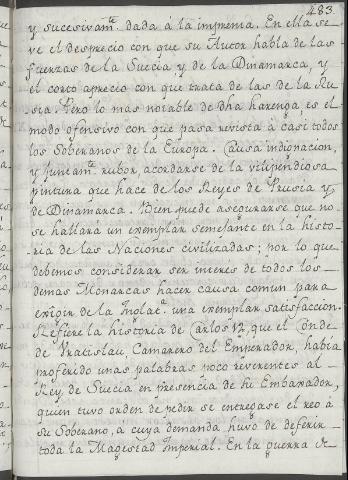 483.
y sucesivam.te dada á la imprenta. En ella se
ve el desprecio con que su Autor habla de las
fuerzas de la Suecia y de la Dinamarca, y
el corto aprecio con que trata de las de la Ru
sia. Pero lo mas notable de dha harenga, es el
modo ofensivo con que pasa revista á casi todos
los Soberanos de la Europa. Causa indignacion,
y juntam.te rubor, acordarse de la vilipendiosa
pintura que hace de los Reyes de Prusia y
de Dinamarca. Bien puede asegurarse que no
se hallará un exemplar semejante en la histo
ria de las Naciones civilizadas; por lo que
debemos considerar ser interés de todos los
demas Monarcas hacer causa comun para
exigir de la Inglat.a una exemplar satisfaccion.
Refiere la historia de Carlos 12, que el Conde
de Bratislau, Camarero del Emperador, había
proferido unas palabras poco reverentes al
Rey de Suecia en presencia de su Embaxador,
quien tuvo orden de pedir se entregase el reo á
su Soberano, á cuya demanda huvo de deferir
toda la Magestad Imperial. En la guerra de